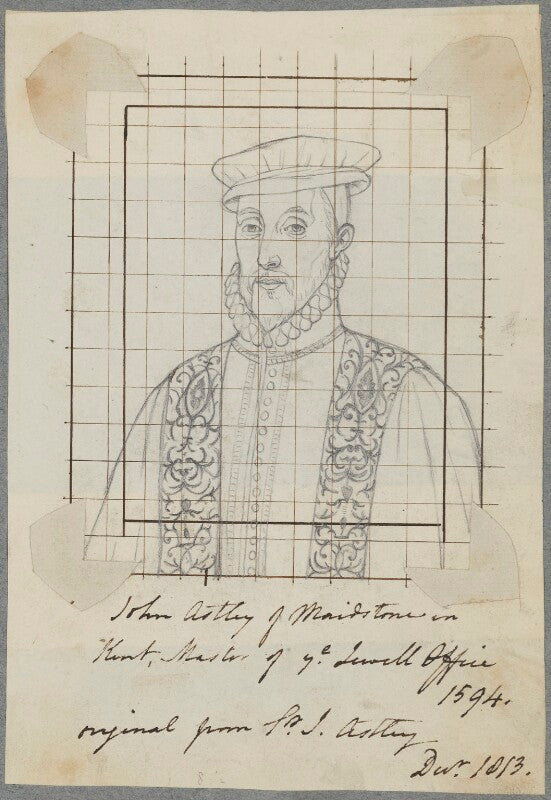 John Astley of Maidstone in
Kent, Master of ye. Jewell Office
1594.
original from Sr. J. Astley
Decr. 1813.